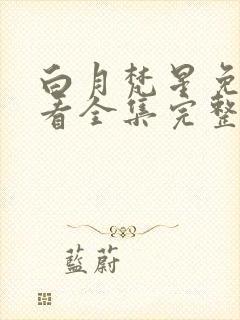 白月梵星免
看全集完整
藍蔚